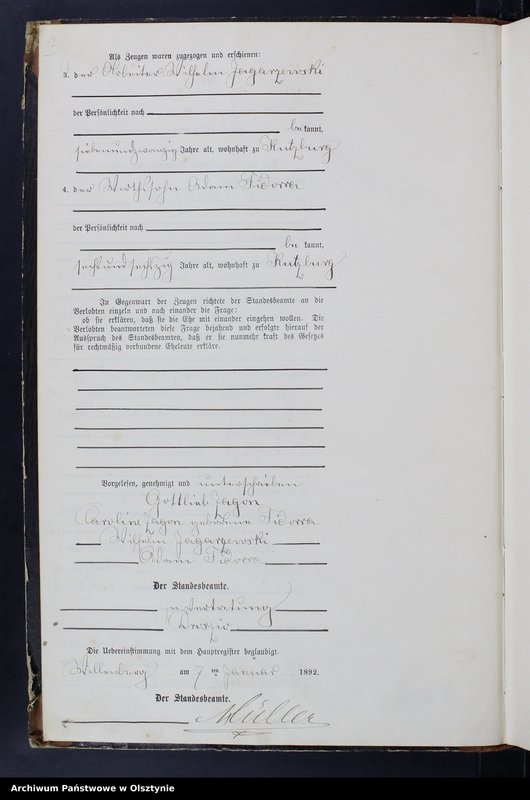 Als Zeugen waren zugezogen und erschienen:
3. der Arbeiter Wilhelm Jagarzewski
der Persönlichkeit nach
be kannt,
siebenundzwanzig Jahre alt, wohnhaft zu Kutzburg
4. der Wirthssohn Adam Fidorra
der Persönlichkeit nach
be kannt,
sechsundsechszig Jahre alt, wohnhaft zu Kutzburg
In Gegenwart der Zeugen richtete der Standesbeamte an die
Verlobten einzeln und nach einander die Frage:
ob sie erklären, daß sie die Ehe mit einander eingehen wollen. Die
Verlobten beantworteten diese Frage bejahend und erfolgte hierauf der
Ausspruch des Standesbeamten, daß er sie nunmehr kraft des Gesetzes
für rechtmäßig verbundene Eheleute erkläre.
Vorgelesen, genehmigt und unterschrieben
Gottlieb Jagon
Caroline Jagon geborene Fidorra
Wilhelm Jagarzewski
Adam Fidorra
Der Standesbeamte.
in Vertretung
Die Uebereinstimmung mit dem Hauptregister beglaubigt.
Willenberg am 7 ten Januar 1892.
Der Standesbeamte.
Müller
Archiwum Państwowe w Olsztynie